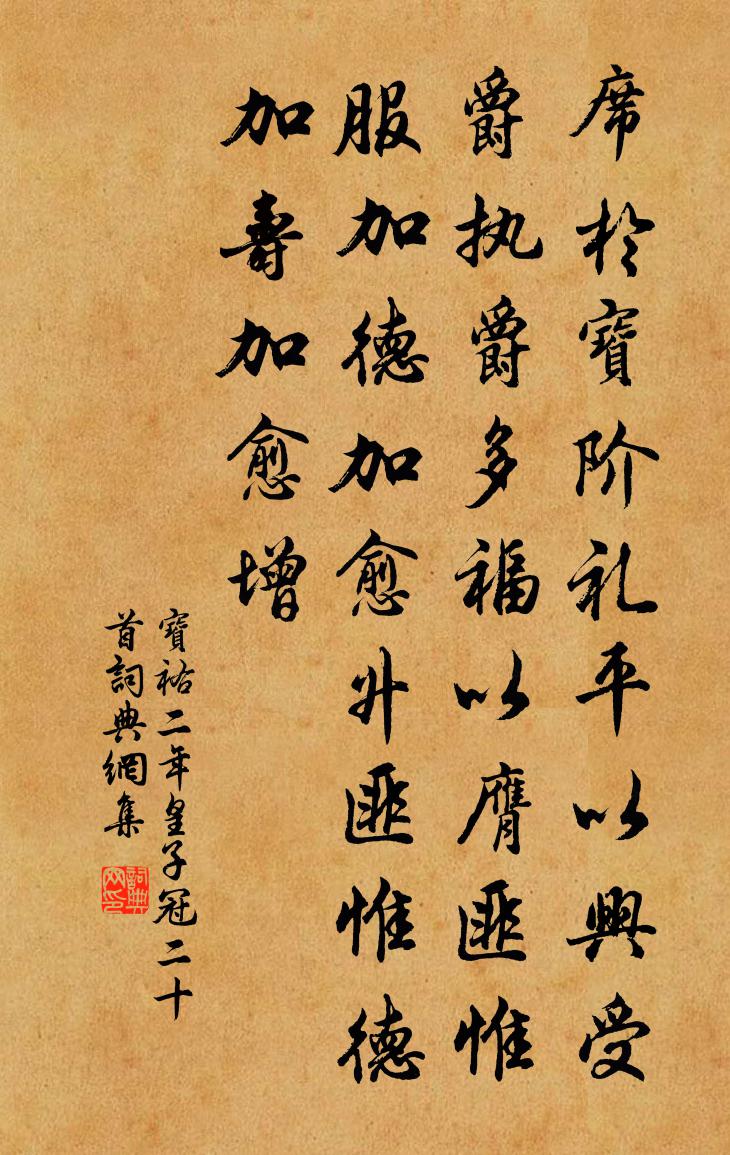 席於寶阶礼平以興受
爵执爵多福以膺匪惟
服加德加愈升匪惟德
加壽加愈增
寶祐二年皇子冠二十
首詞典網集
詞典
网印